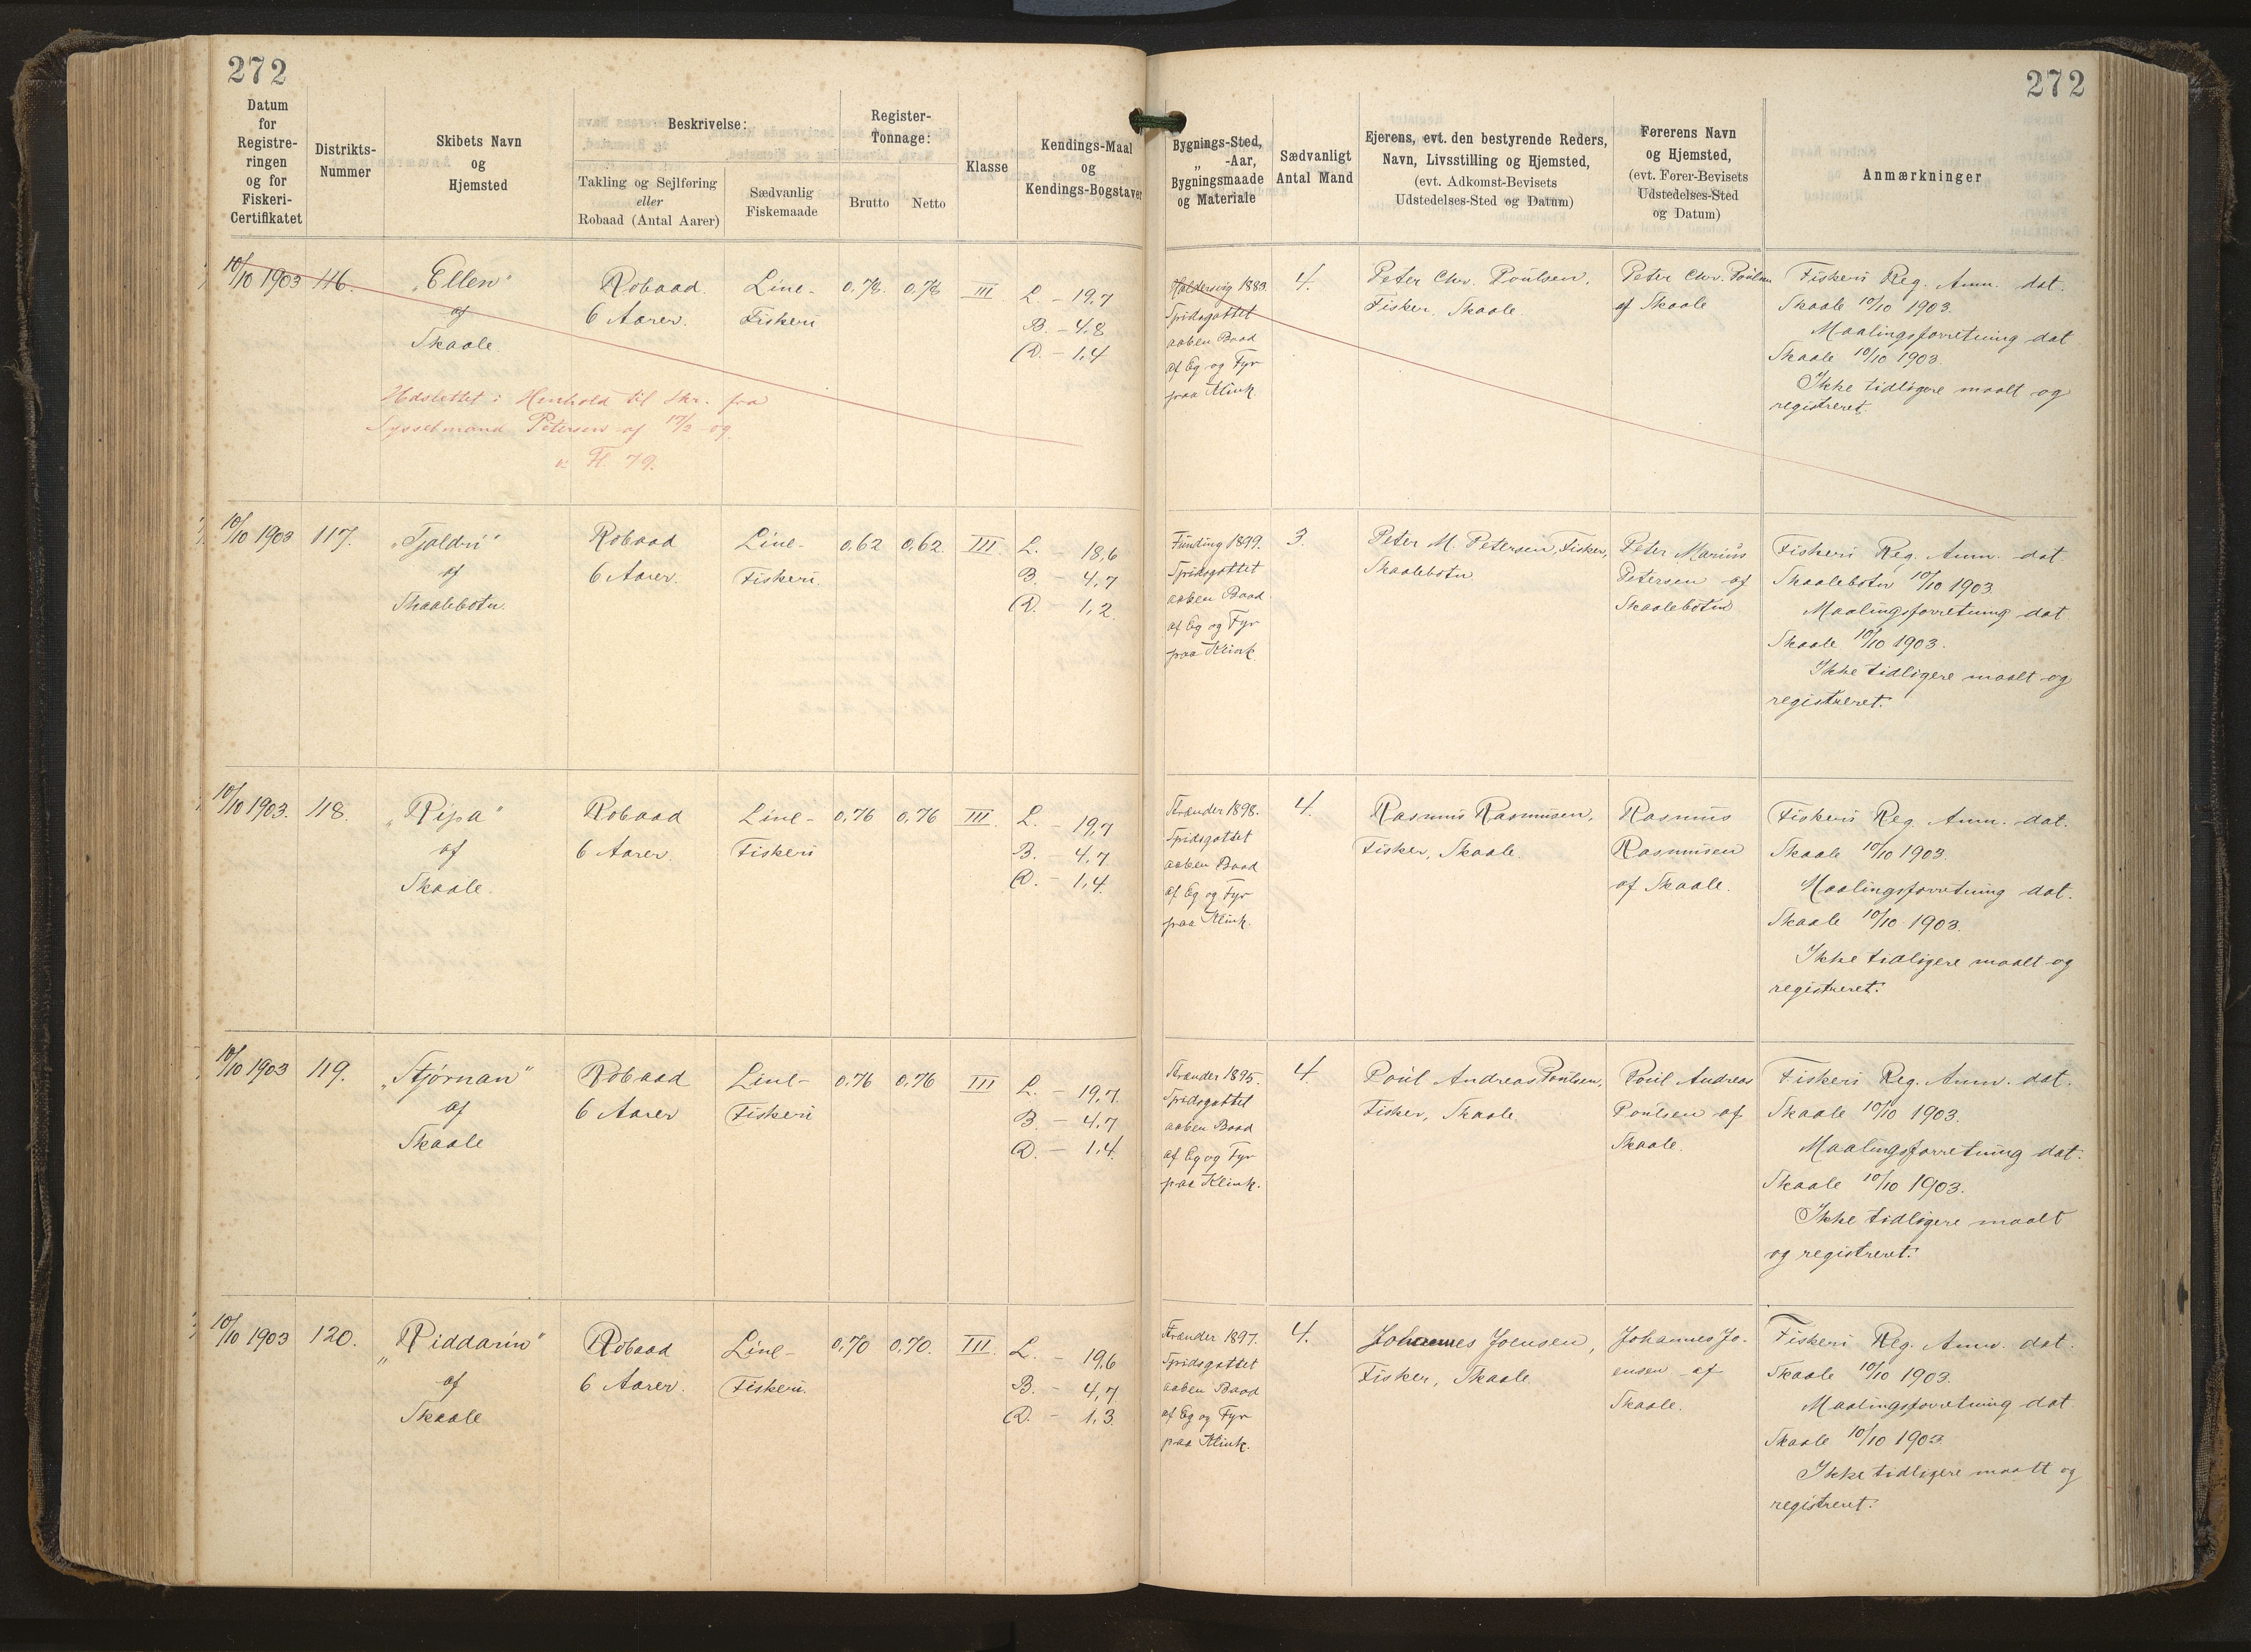 272
272
Datum
for
Registre-
ringen
og for
Fiskeri-
Certifikatet
Distrikts-
Nummer
Skibets Navn
og
Hjemsted
Beskrivelse:
Takling og Sejlføring
eller
Robaad (Antal Aarer)
Sædvanlig
Fiskemaade
Register-
Tonnage:
Brutto
Netto
Klasse
Kendings-Maal
og
Kendings-Bogstaver
Bygnings-Sted,
„ -Aar,
Bygningsmaade
og Materiale
Sædvanligt
Antal Mand
Ejerens, evt. den bestyrende Reders,
Navn, Livsstilling og Hjemsted,
(evt. Adkomst-Bevisets
Udstedelses-Sted og Datum)
Førerens Navn
og Hjemsted,
(evt. Fører-Bevisets
Udstedelses-Sted
og Datum)
Anmærkninger
10/10 1903
116.
„Ellen"
af
Skaale
Robaad.
6 Aarer.
Line-
Fiskeri
0,78.
0,78
III
L. - 19,7
B. - 4,8
D. - 1,4
Haldersvig 1883.
Spidsgattet
aaben Baad
af Eg og Fyr
paa Klink.
4.
Peter Chr. Poulsen,
Fisker, Skaale.
Peter Chr. Poulsen
af Skaale
Fiskeri Reg. Anm. dat.
Skaale 10/10 1903.
Maalingsforretning dat
Skaale 10/10 1903.
Ikke tidligere maalt og
registreret.
Udslettet i Henhold til Skr. fra
Sysselmand Petersen af 17/2 og
Fl. 79.
10/10 1903
117.
„Tjaldri"
af
Skaalebotn.
Robaad
6 Aarer.
Line-
Fiskeri.
0,62
0,62.
III
L. - 18,6
B. - 4,7
D. - 1,2.
Funding 1899.
Spidsgattet
aaben Baad
af Eg og Fyr
paa Klink
3.
Peter M. Petersen, Fisker,
Skaalebotn
Peter Marius
Petersen af
Skaalebotn
Fiskeri Reg. Anm. dat.
Skaalebotn 10/10 1903
Maalingsforretning dat
Skaale 10/10 1903.
Ikke tidligere maalt og
registreret.
10/10 1903.
118.
„Ripa"
af
Skaale.
Robaad
6 Aarer.
Line-
Fiskeri
0,76
0,76
III.
L. - 19,7
B. - 4,7
D. - 1,4.
Strander 1898.
Spidsgattet
aaben Baad
af Eg og Fyr
paa Klink.
4.
Rasmus Rasmusen,
Fisker, Skaale.
Rasmus
Rasmusen
af Skaale.
Fiskeri Reg. Anm. dat.
Skaale 10/10 1903.
Maalingsforretning dat.
Skaale 10/10 1903.
Ikke tidligere maalt og
registreret.
10/10 1903
119.
„Stjørnan"
af
Skaale
Robaad
6 Aarer
Line-
Fiskeri
0,76
0,76
III
L. - 19,7.
B. - 4,7
D. - 1,4.
Strander 1895.
Spidsgattet
aaben Baad
af Eg og Fyr
paa Klink.
4.
Poul Andreas Poulsen,
Fisker, Skaale.
Poul Andreas
Poulsen af
Skaale.
Fiskeri Reg. Anm. dat.
Skaale 10/10 1903.
Maalingsforretning dat.
Skaale 10/10 1903.
Ikke tidligere maalt
og registreret.
10/10 1903
120.
„Riddarin"
af
Skaale
Robaad
6 Aarer.
Line-
Fiskeri.
0,70
0,70.
III.
L. - 19,6
B. - 4,7
D. - 1,3.
Strander 1897.
Spidsgattet
aaben Baad
af Eg og Fyr
paa Klink.
4.
Johannes Joensen,
Fisker, Skaale
Johannes Jo-
ensen af
Skaale.
Fiskeri Reg. Anm. dat.
Skaale 10/10 1903.
Maalingsforretning dat.
Skaale 10/10 1903
Ikke tidligere maalt og
registreret.